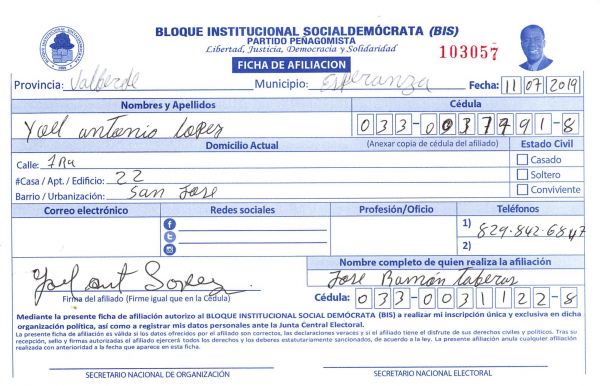 BLOQUE INSTITUCIONAL SOCIALDEMÓCRATA (BIS)
PARTIDO PEÑAGOMISTA
Libertad, Justicia, Democracia y Solidaridad
FICHA DE AFILIACION
103057
Provincia: Valverde Municipio: Esperanza Fecha: 11 07 2019
Nombres y Apellidos Cédula
Yoel antonio Lopez 033-0037791-8
Domicilio Actual (Anexar copia de cédula del afiliado) Estado Civil
Calle: 1Ra Casado
#Casa / Apt. / Edificio: 22 Soltero
Barrio / Urbanización: San Jose Conviviente
Correo electrónico Redes sociales Profesión/Oficio Teléfonos
1) 829-842-6847
2)
Nombre completo de quien realiza la afiliación
Jose Ramón Taveras
Firma del afiliado (Firme igual que en la Cédula) Cédula: 033-0031122-8
Mediante la presente ficha de afiliación autorizo al BLOQUE INSTITUCIONAL SOCIAL DEMÓCRATA (BIS) a realizar mi inscripción única y exclusiva en dicha
organización política, así como a registrar mis datos personales ante la Junta Central Electoral.
La presente ficha de afiliación es válida si los datos ofrecidos por el afiliado son correctos, las declaraciones veraces y si el afiliado tiene el disfrute de sus derechos civiles y políticos. Tras su
recepción, sello y firmas autorizadas el afiliado ejercerá todos los derechos y los deberes estatutariamente sancionados, de acuerdo a la ley. La presente afiliación anula cualquier afiliación
realizada con anterioridad a la fecha que aparece en esta ficha.
SECRETARIO NACIONAL DE ORGANIZACIÓN SECRETARIO NACIONAL ELECTORAL